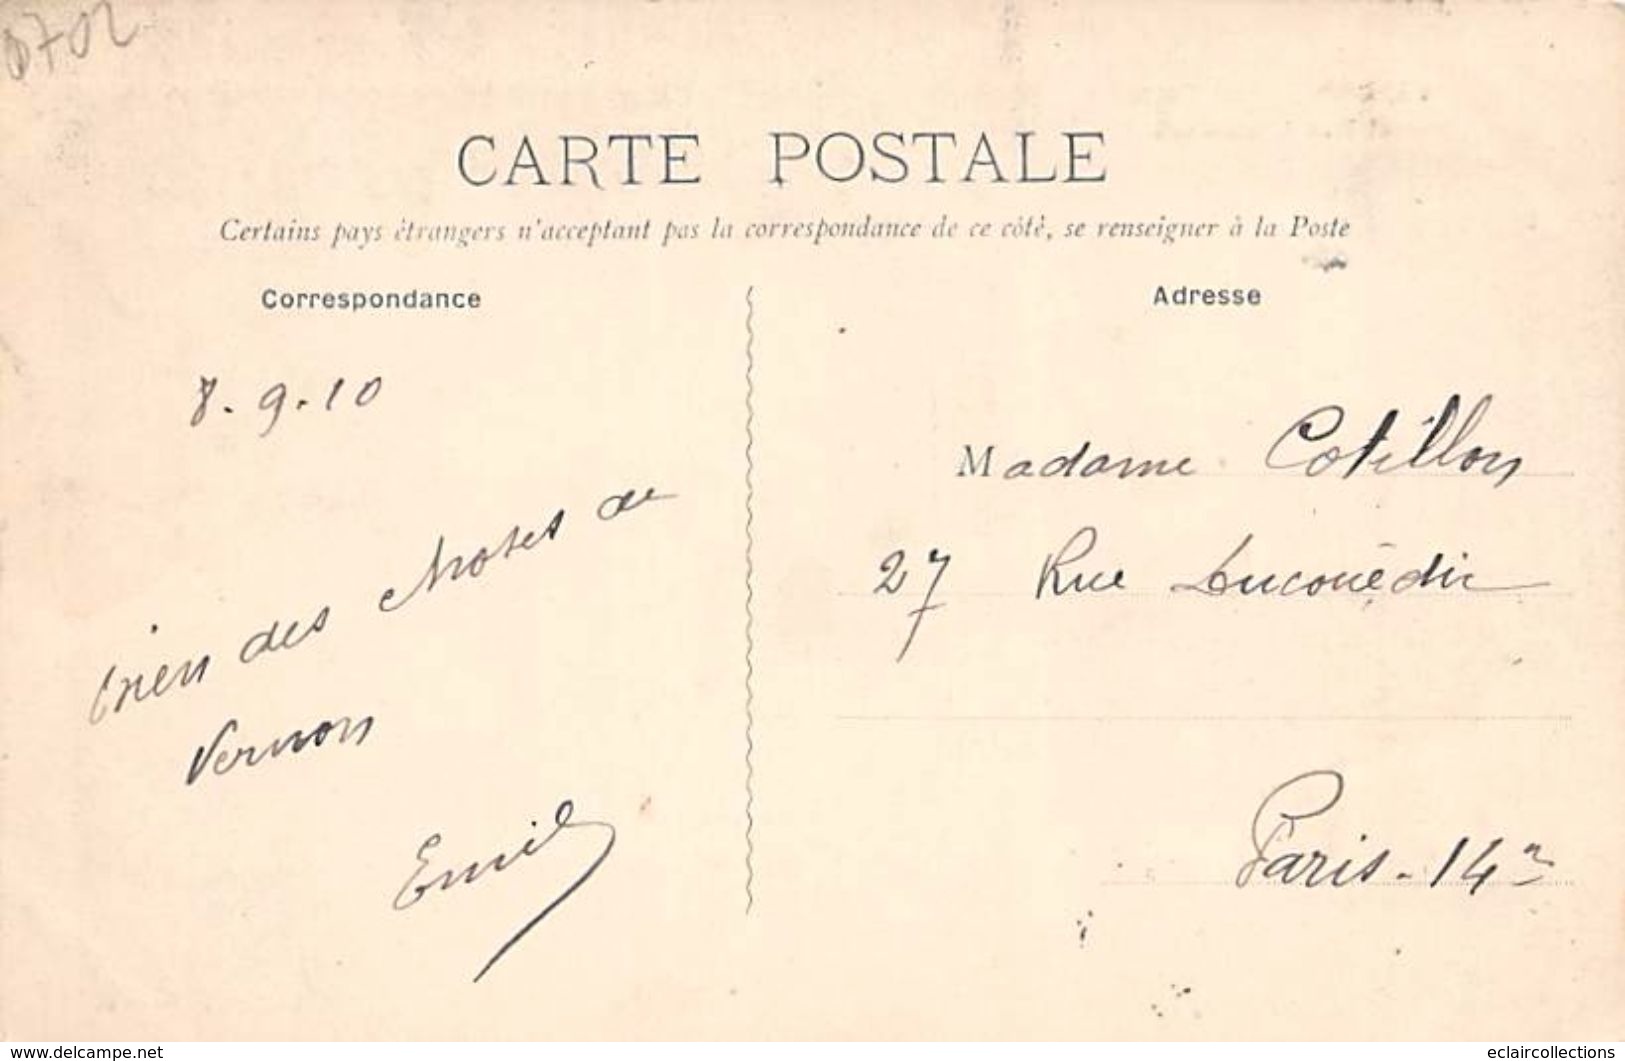 0702
CARTE POSTALE
Certains pays étrangers n'acceptant pas la correspondance de ce côté, se renseigner à la Poste
Correspondance
Adresse
8.9.10
bien des choses de
Vernon
Emile
Madame Cotillon
27 Rue Ducouëdic
Paris - 14e
www.delcampe.net
eclaircollections